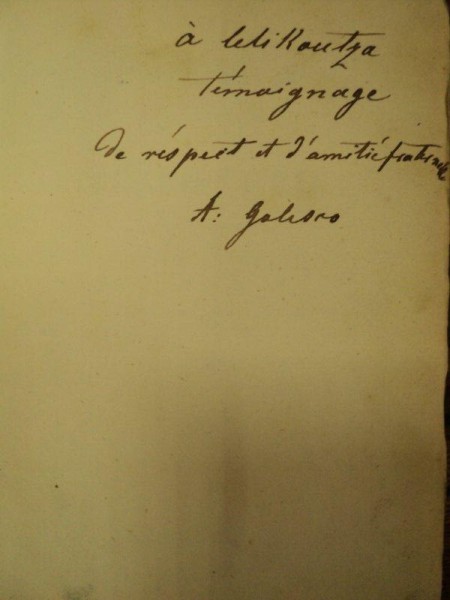 à lelikoutza
témoignage
de réspect et d'amitié fraternelle
A: Golesco